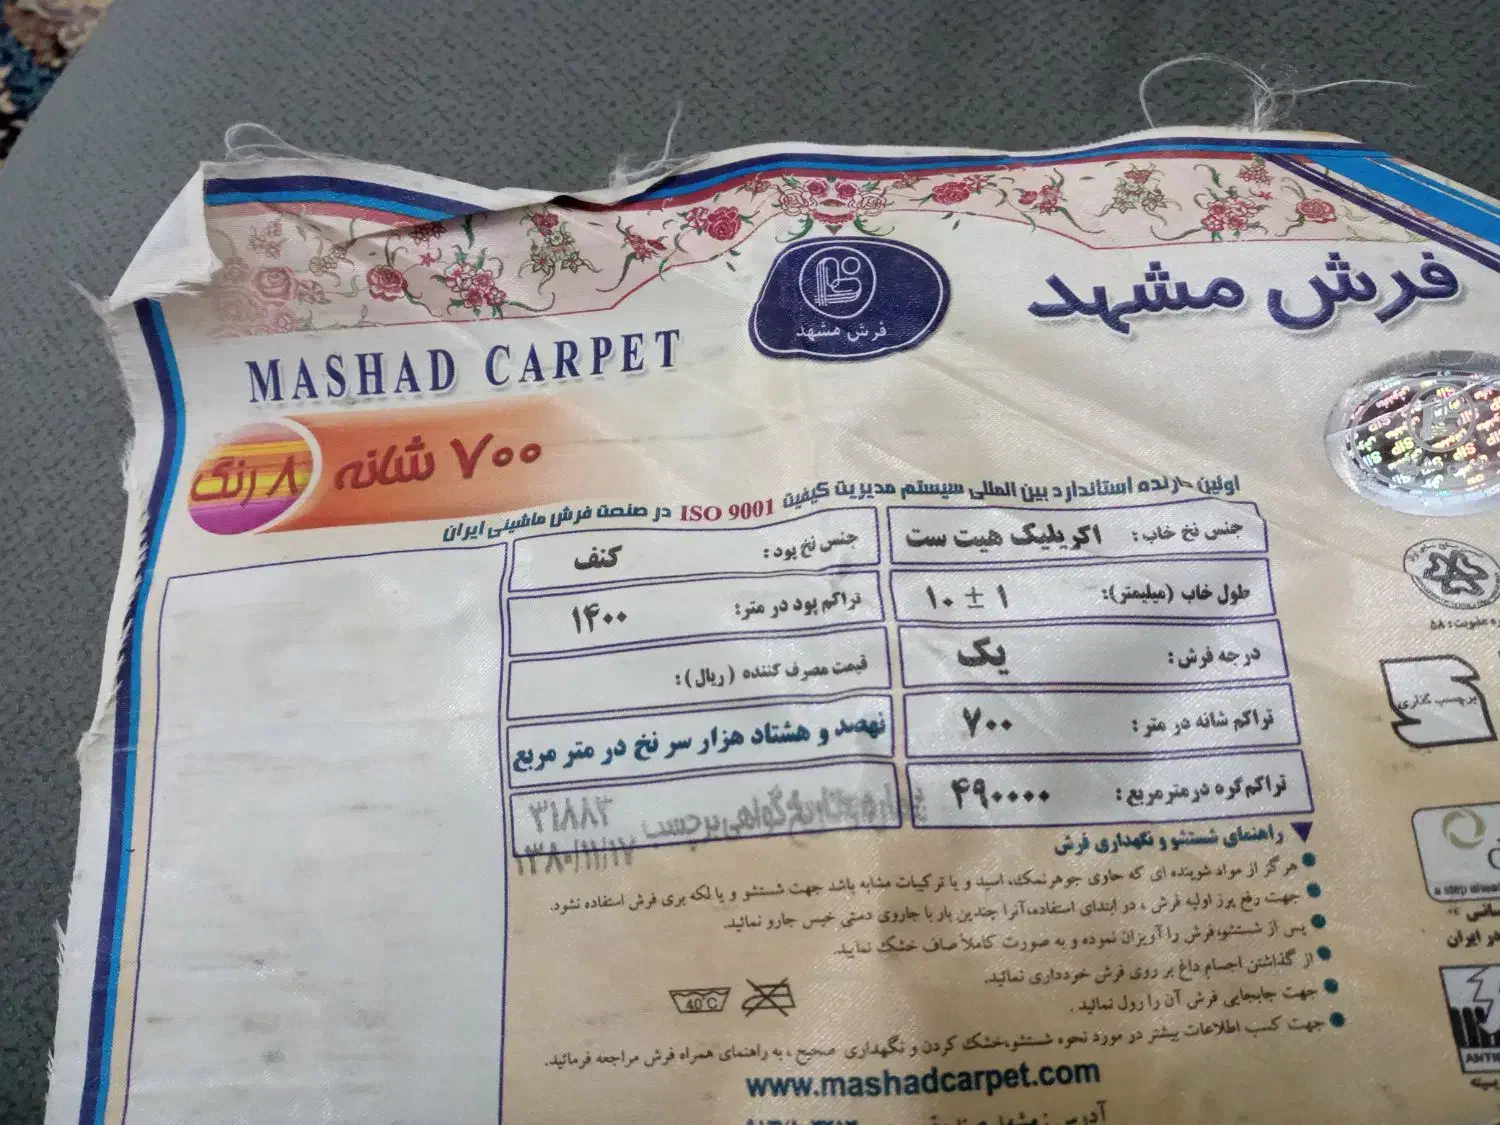 فرش مشهد
فرش مشهد
MASHAD CARPET
۷۰۰ شانه
۸ رنگ
اولین دارنده استاندارد بین المللی سیستم مدیریت کیفیت ISO 9001 در صنعت فرش ماشینی ایران
جنس نخ خاب: اکریلیک هیت ست
جنس نخ پود: کنف
طول خاب (میلیمتر): ۱۰ ± ۱
تراکم پود در متر: ۱۴۰۰
درجه فرش: یک
قیمت مصرف کننده (ریال):
تراکم شانه در متر: ۷۰۰
نهصد و هشتاد هزار سر نخ در متر مربع
تراکم گره در متر مربع: ۴۹۰۰۰۰
گواهی برچسب ۳۱۸۸۳
۱۳۸۰/۱۱/۱۷
راهنمای شستشو و نگهداری فرش
هرگز از مواد شوینده ای که حاوی جوهرنمک، اسید و یا ترکیبات مشابه باشد جهت شستشو و یا لکه بری فرش استفاده نشود.
جهت رفع پرز اولیه فرش، در ابتدای استفاده، آنرا چندین بار با جاروی دستی خیس جارو نمائید.
پس از شستشو، فرش را آویزان نموده و به صورت کاملاً صاف خشک نمایید.
از گذاشتن اجسام داغ بر روی فرش خودداری نمائید.
جهت جابجایی فرش آن را رول نمائید.
جهت کسب اطلاعات بیشتر در مورد نحوه شستشو، خشک کردن و نگهداری صحیح، به راهنمای همراه فرش مراجعه فرمائید.
40°C
www.mashadcarpet.com
آدرس: مشهد
برچسب گذاری
عضویت: ۵۸
a step ahead
در ایران